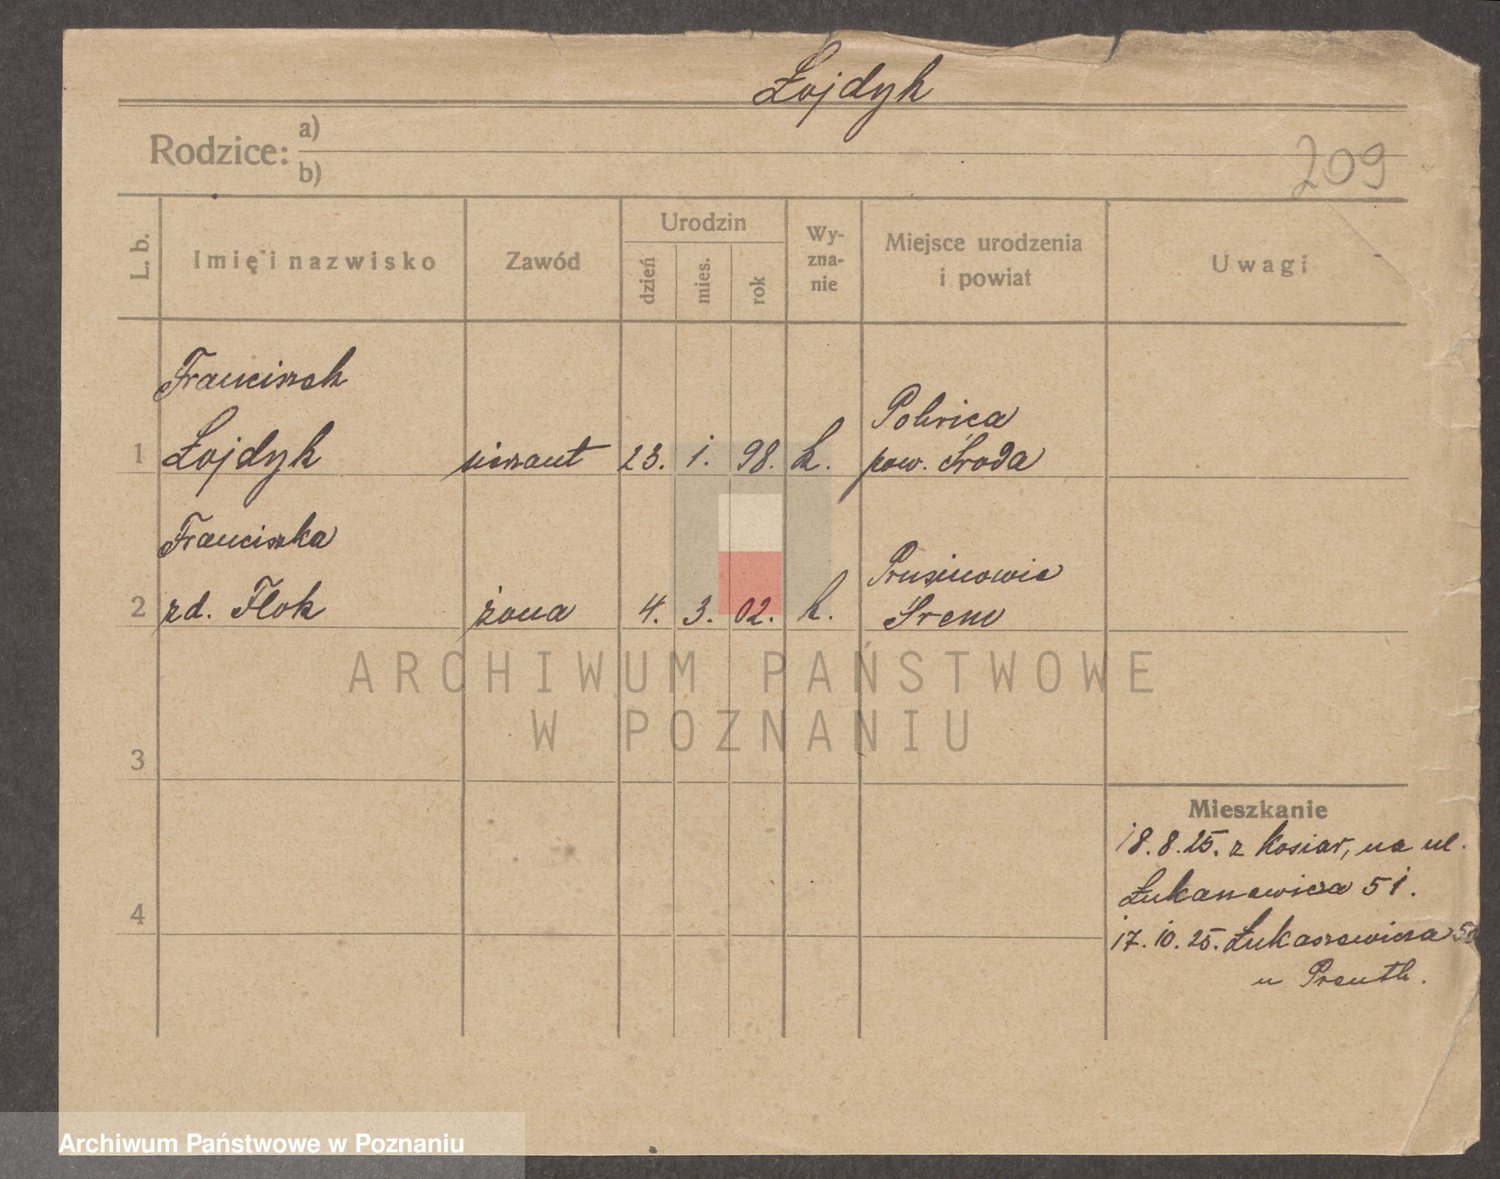 Łojdyk
Rodzice: a)
b)
209
L. b.
Imię i nazwisko
Zawód
Urodzin
dzień
mies.
rok
Wy-
zna-
nie
Miejsce urodzenia
i powiat
Uwagi
Franciszek
1 Łojdyk 23. 1. 98. k. pow. Środa
Franciszka
2 zd. Flok żona 4. 3. 02. k. Śrem
3
4
Mieszkanie
18.8.25. z Kosiar, na ul.
51.
17.10.25. Łukaszewicza
u
ARCHIWUM PAŃSTWOWE
W POZNANIU
Archiwum Państwowe w Poznaniu